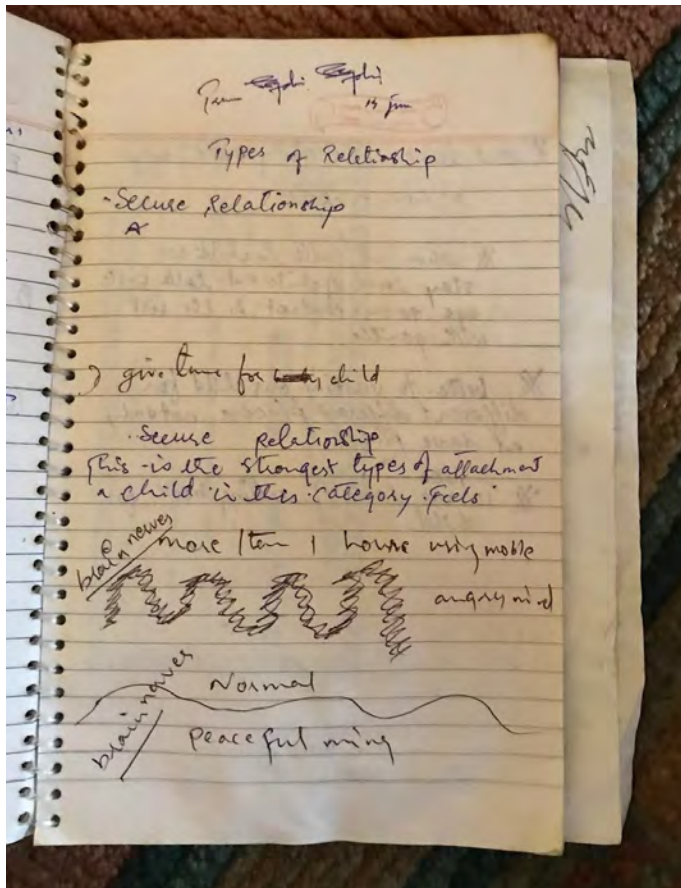 15 jun
Types of Reletioship
Secuse Relationship
A
) give time for child
Secuse Relationship
This is the strongest types of attachment
a child in this category feels
brain nerves
more 1 hourse using moble
angry mind
Normal
brain nerves
peaceful ming